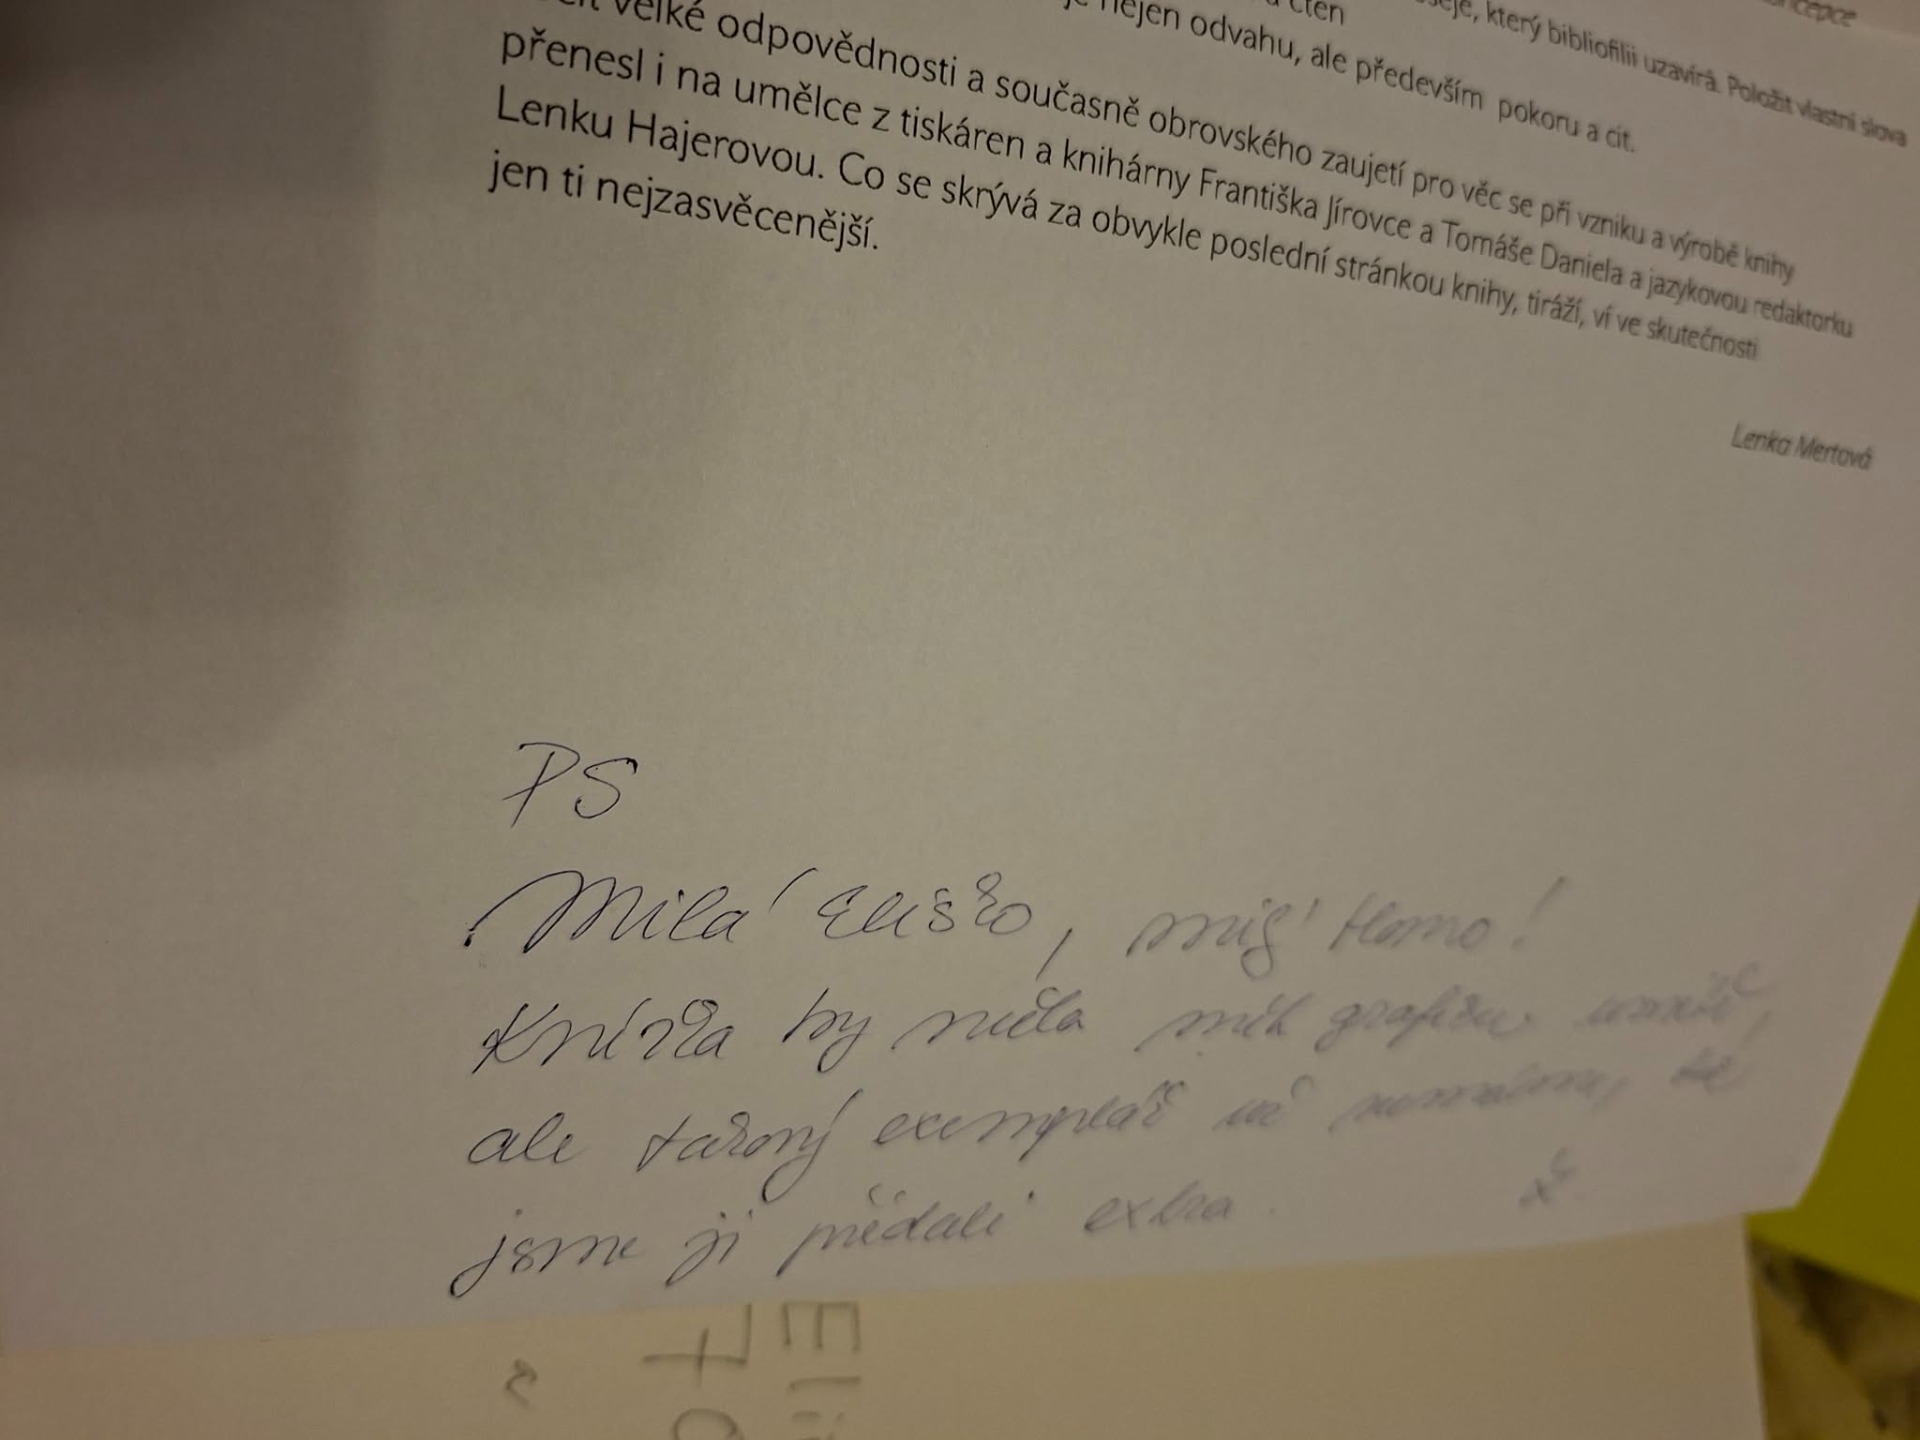 koncepce
který bibliofilii uzavírá. Položit vlastní slova
nejen odvahu, ale především pokoru a cit.
velké odpovědnosti a současně obrovského zaujetí pro věc se při vzniku a výrobě knihy
přenesl i na umělce z tiskáren a knihárny Františka Jírovce a Tomáše Daniela a jazykovou redaktorku
Lenku Hajerovou. Co se skrývá za obvykle poslední stránkou knihy, tiráží, ví ve skutečnosti
jen ti nejzasvěcenější.
Lenka Mertová
PS
Milá Eliško, milý Homo!
Knížka by měla mít grafiku uvnitř,
ale takový exemplář už nemáme, tak
jsme ji přidali extra.